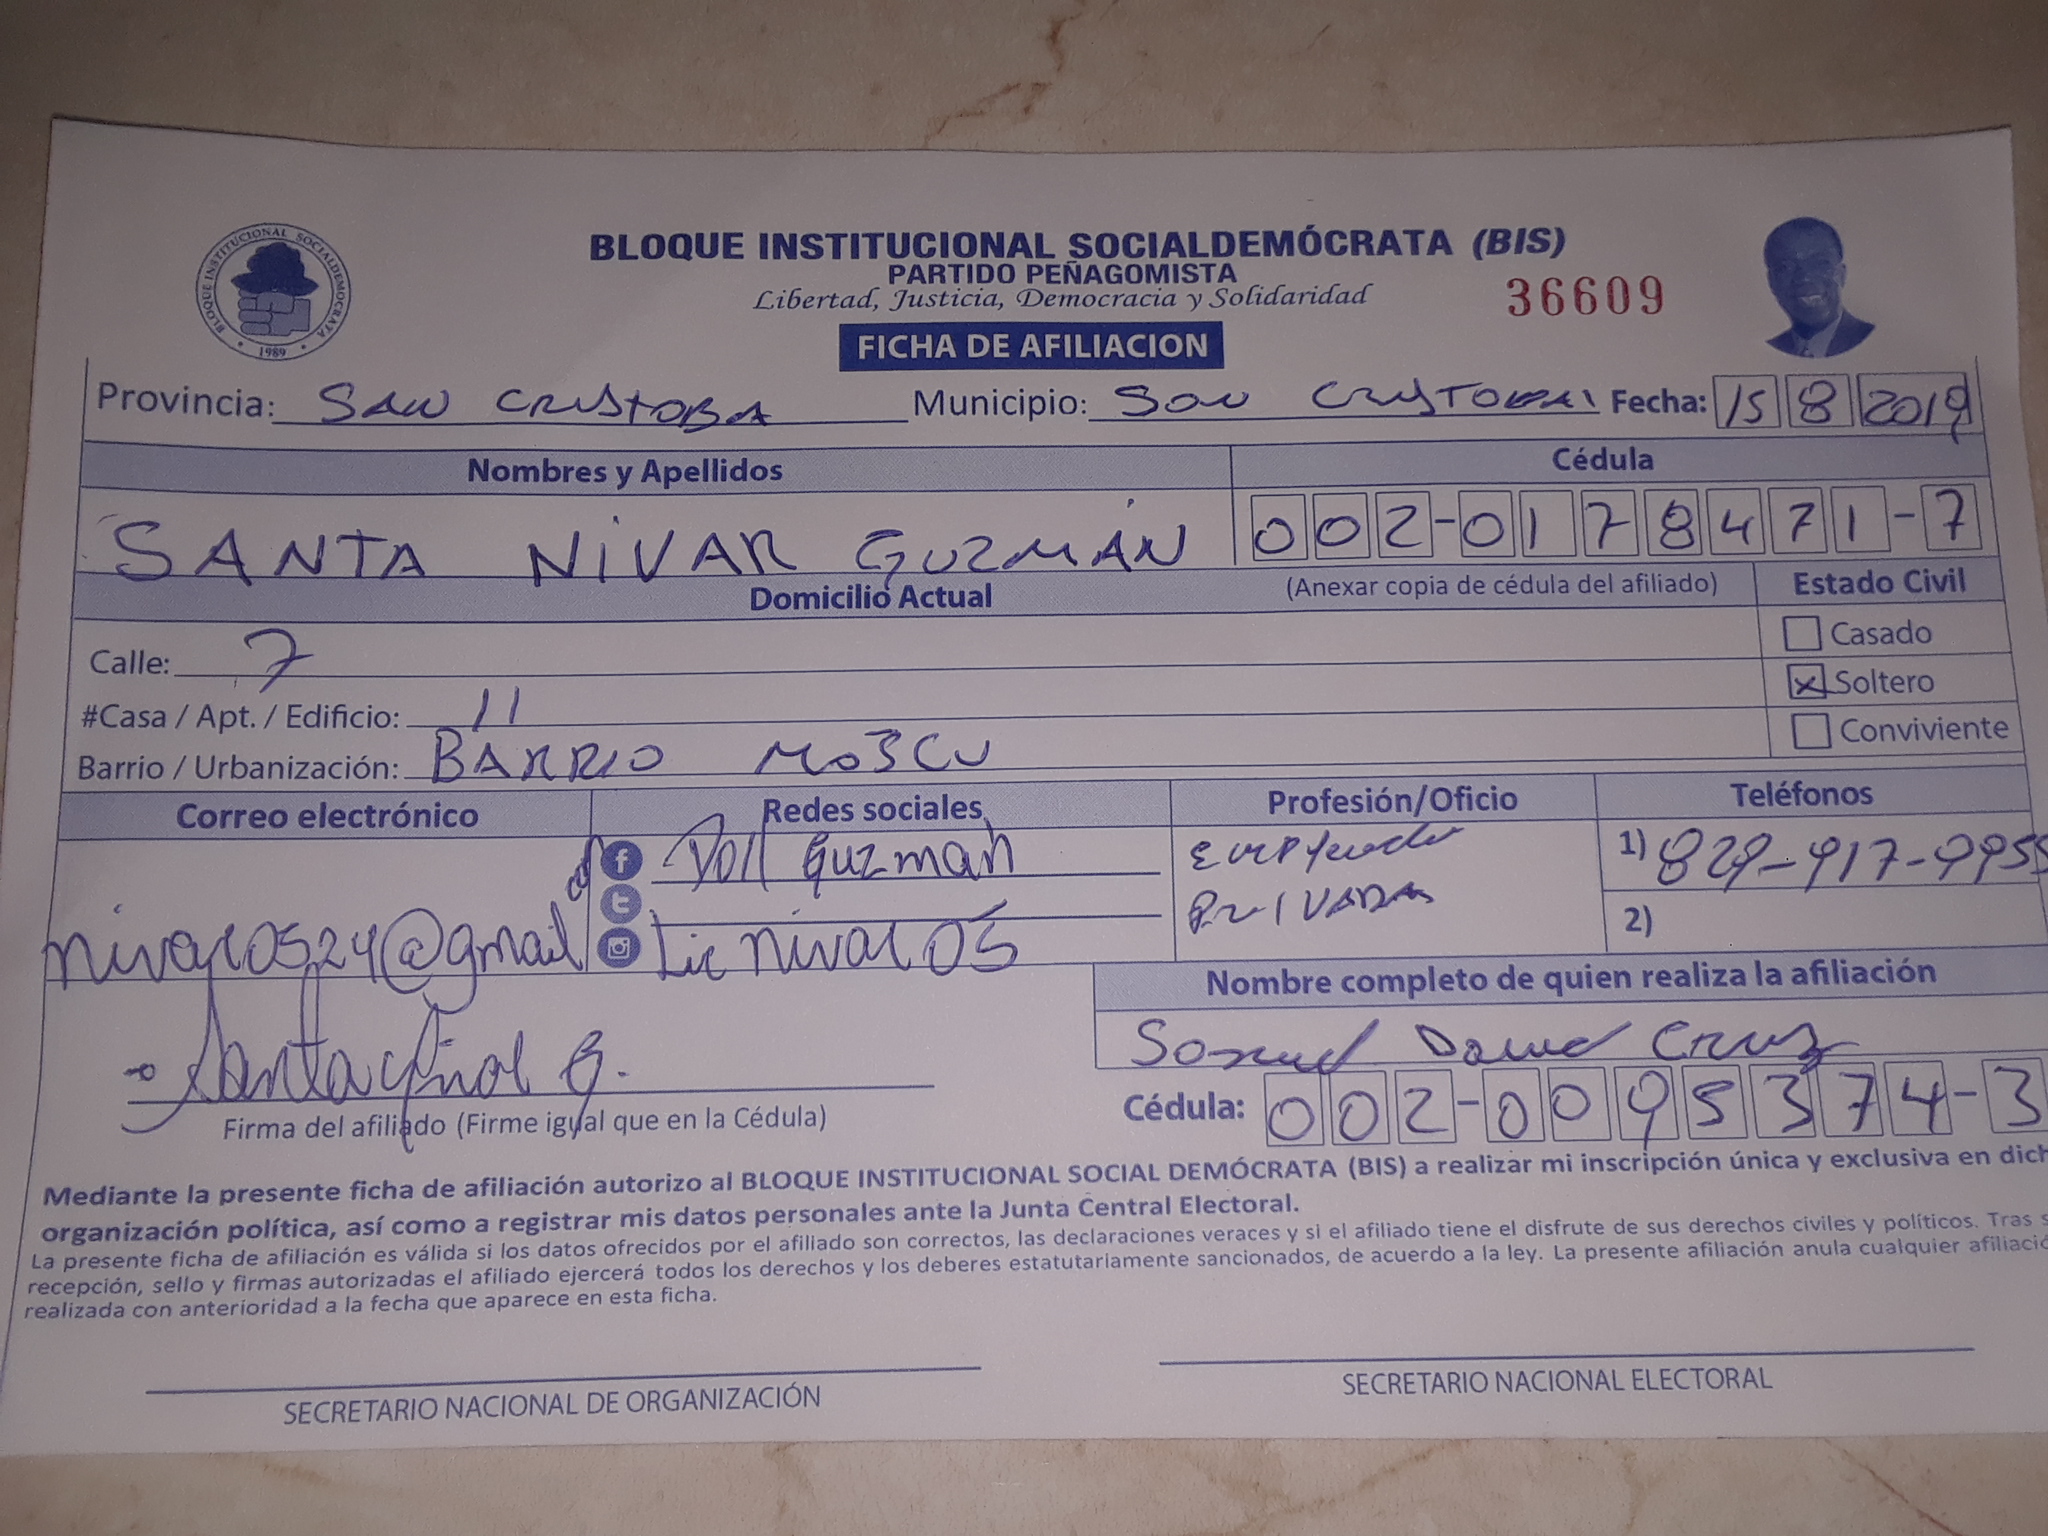 BLOQUE INSTITUCIONAL SOCIALDEMOCRATA
1989
BLOQUE INSTITUCIONAL SOCIALDEMÓCRATA (BIS)
PARTIDO PEÑAGOMISTA
Libertad, Justicia, Democracia y Solidaridad
36609
FICHA DE AFILIACION
Provincia: SAN CRISTOBA Municipio: SAN CRISTOBAL Fecha: 15 8 2019
Nombres y Apellidos Cédula
SANTA NIVAR GUZMÁN 002-0178471-7
Domicilio Actual (Anexar copia de cédula del afiliado) Estado Civil
Calle: 7 Casado
#Casa / Apt. / Edificio: 11 x Soltero
Barrio / Urbanización: BARRIO MOSCU Conviviente
Correo electrónico Redes sociales Profesión/Oficio Teléfonos
f Doll Guzman 1) 829-917-9955
PRIVADA 2)
nivar0524@gmail Lic nivar 05
Nombre completo de quien realiza la afiliación
David Cruz
Santa G.
Cédula: 002-0095374-3
Firma del afiliado (Firme igual que en la Cédula)
Mediante la presente ficha de afiliación autorizo al BLOQUE INSTITUCIONAL SOCIAL DEMÓCRATA (BIS) a realizar mi inscripción única y exclusiva en dich
organización política, así como a registrar mis datos personales ante la Junta Central Electoral.
La presente ficha de afiliación es válida si los datos ofrecidos por el afiliado son correctos, las declaraciones veraces y si el afiliado tiene el disfrute de sus derechos civiles y políticos. Tras s
recepción, sello y firmas autorizadas el afiliado ejercerá todos los derechos y los deberes estatutariamente sancionados, de acuerdo a la ley. La presente afiliación anula cualquier afiliació
realizada con anterioridad a la fecha que aparece en esta ficha.
SECRETARIO NACIONAL DE ORGANIZACIÓN SECRETARIO NACIONAL ELECTORAL